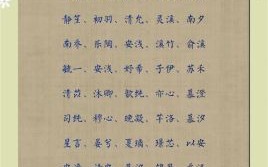 静笙、初羽、清允、灵溪、南夕
南乔、乐陶、安浅、溪竹、俞溪
毓一、安浅、好希、子伊、苏禾
清茴、休卿、歆纯、亦心、慕澄
司纯、穆心、晚凝、芊洛、慕汐
星言、晏兮、夏璃、璟芯、以安